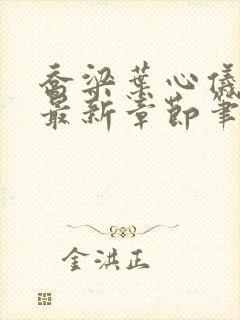 乔梁叶心仪
最新章节笔
金洪正